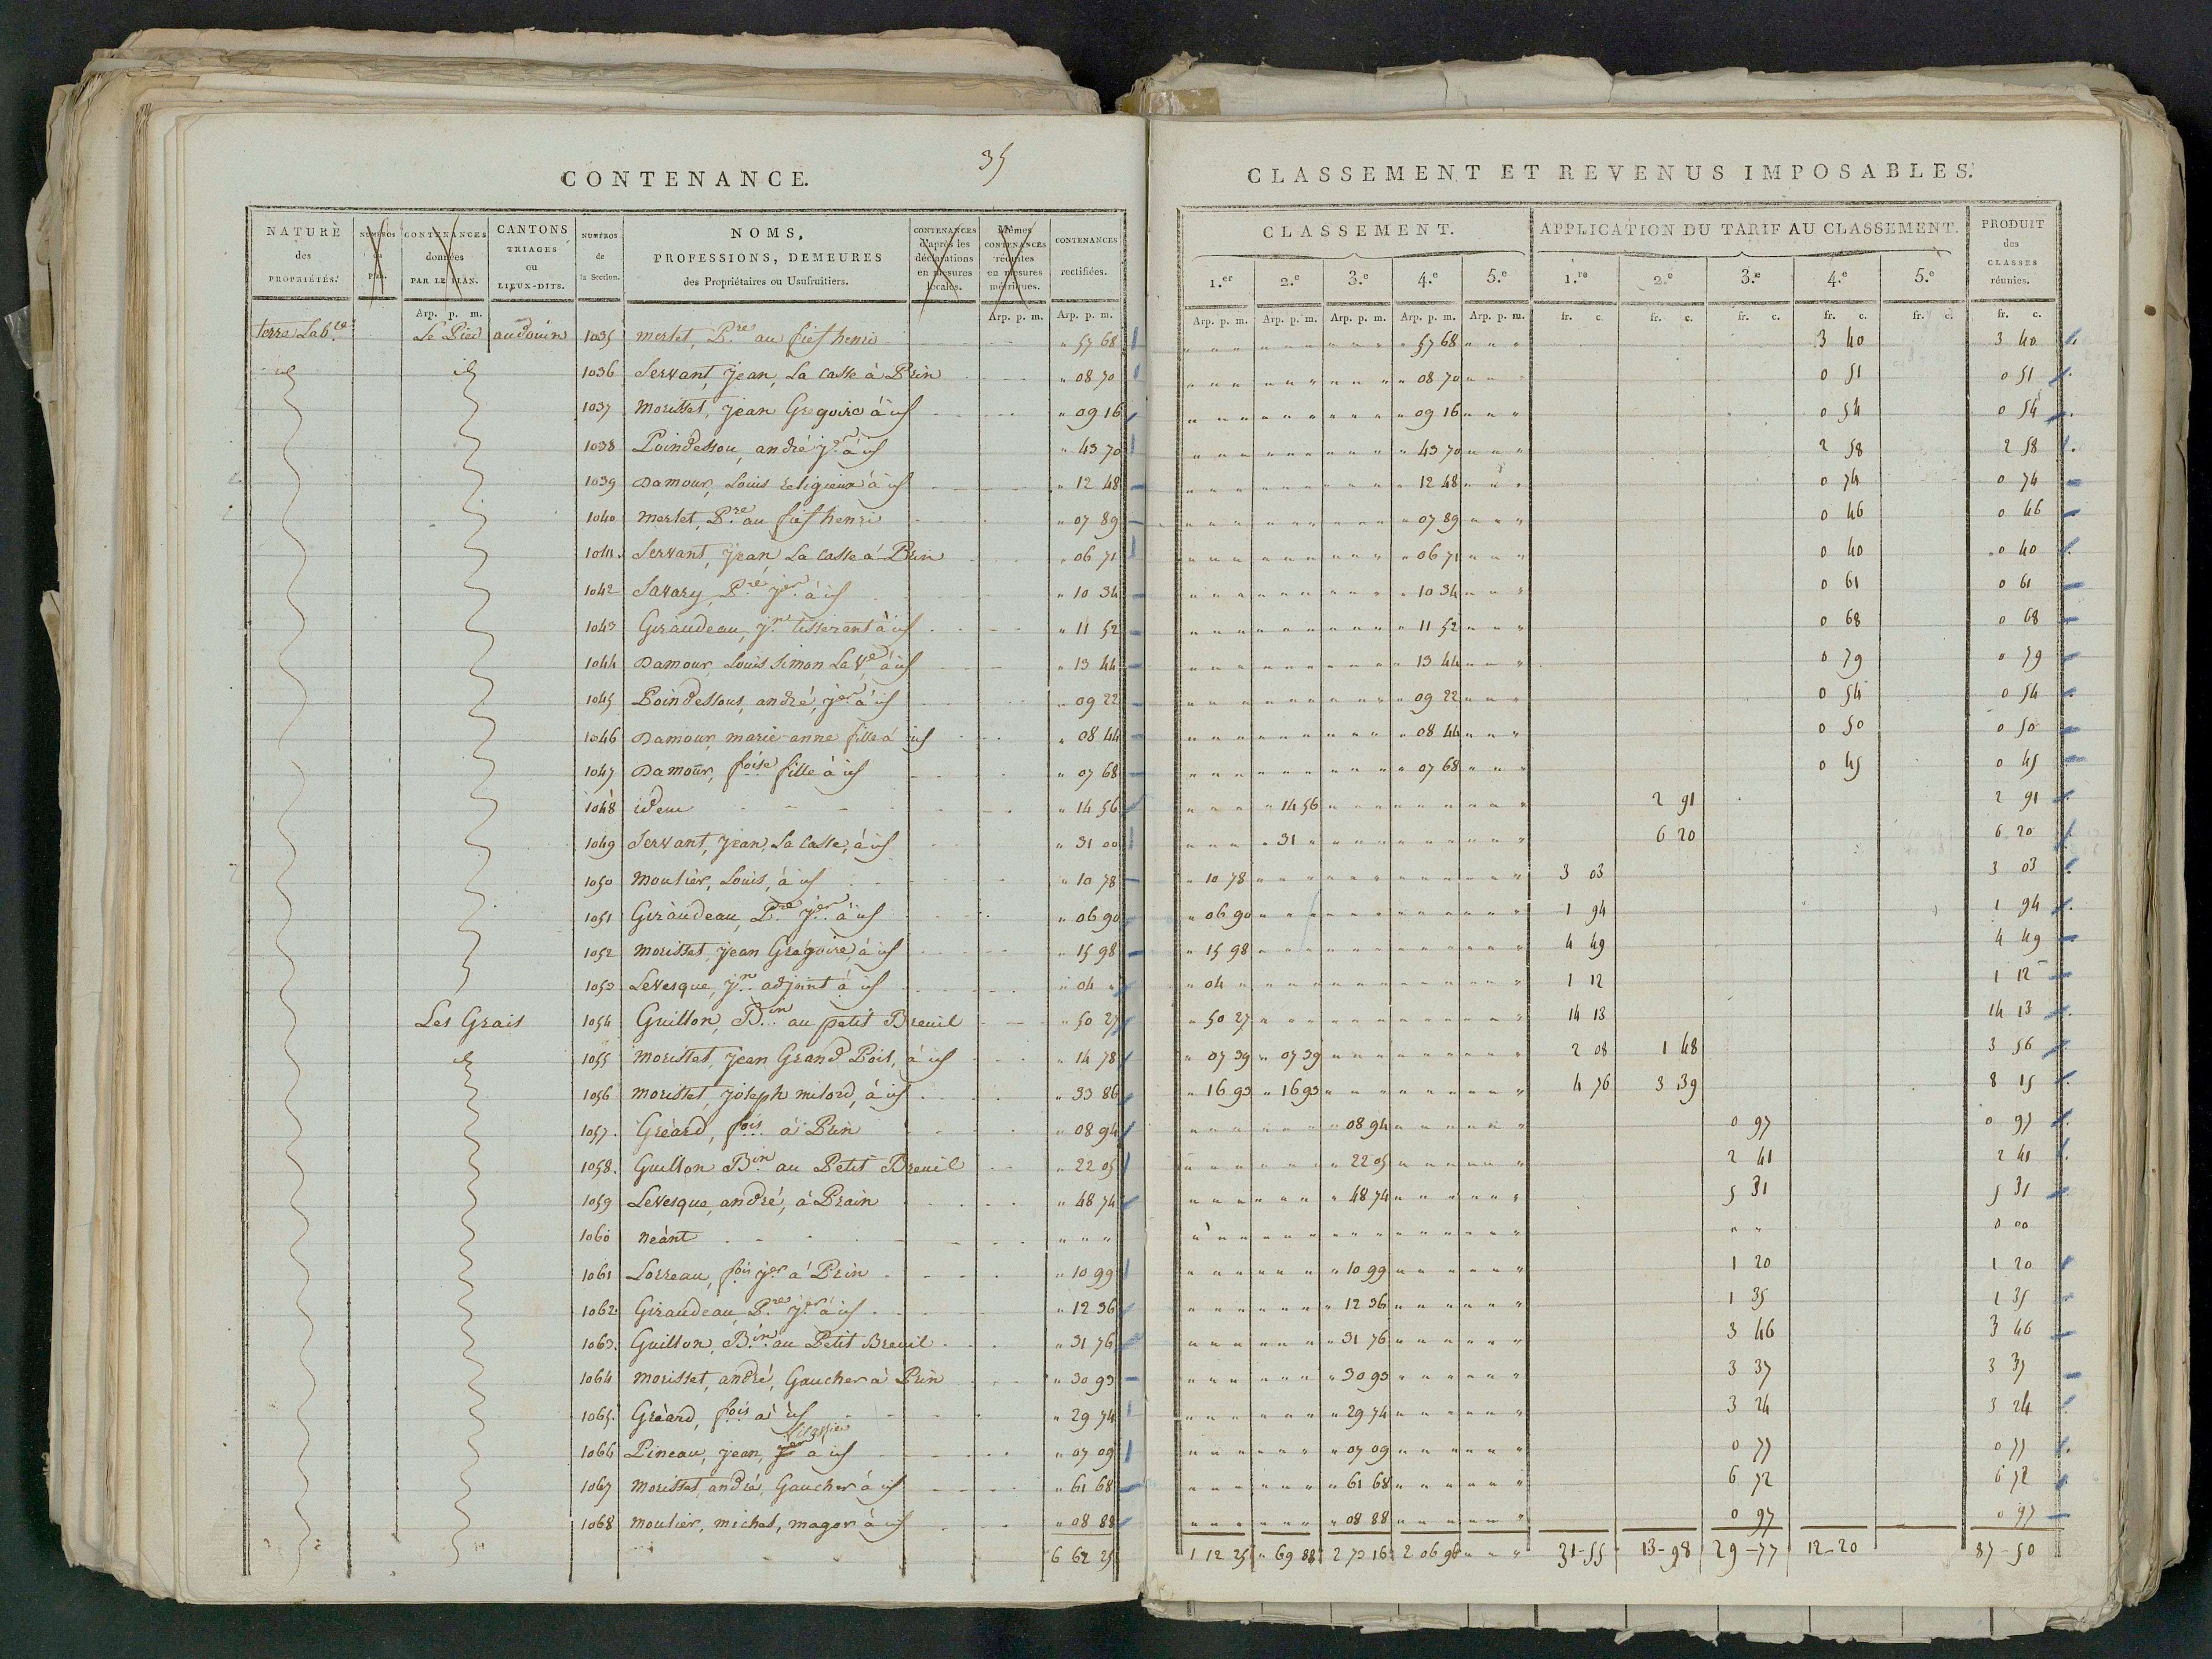 35
CONTENANCE.
NATURE des PROPRIÉTÉS.
NUMÉROS du
CONTENANCES données PAR LE PLAN.
CANTONS TRIAGES ou LIEUX-DITS.
NUMÉROS de la Section.
NOMS, PROFESSIONS, DEMEURES des Propriétaires ou Usufruitiers.
CONTENANCES d'après les déclarations en mesures locales.
Mêmes CONTENANCES réduites en mesures métriques.
CONTENANCES rectifiées.
Arp. p. m. Arp. p. m. Arp. p. m.
terre Lab.le Le Pied audouin 1035 merlet, P.re au fief henri " 57 68
id id 1036 Servant, jean, La Casse à Prin " 08 70
1037 Morisset, jean Gregoire à id " 09 16
1038 Poindessou, andré j.er à id " 43 70
1039 Damour, Louis religieux à id " 12 48
1040 merlet, P.re au fief henri " 07 89
1041. Servant, jean La Casse à Prin " 06 71
1042 Savary, P.re j.er à id " 10 34
1043 Giraudeau, j.n tisserant à id " 11 52
1044 Damour, Louis Simon La V.e à id " 13 44
1045 Poindessous, andré, j.er à id " 09 22
1046 Damour, marie-anne fille à id " 08 44
1047 Damour, f.oise fille à id " 07 68
1048 idem " 14 56
1049 Servant, jean, La Casse, à id " 31 00
1050 Moulier, Louis, à id " 10 78
1051 Giraudeau, P.re j.er à id " 06 90
1052 Morisset, jean Grégoire, à id " 15 98
1053 Levesque, j.n adjoint à id " 04 "
Les Grais 1054 Guillon, B.in au petit Breuil " 50 27
id 1055 Morisset, jean Grand Pois, à id " 14 78
1056 Morisset, joseph milord, à id " 33 86
1057. Gréard, f.ois à Prin " 08 94
1058. Guillon B.in au Petit Breuil " 22 05
1059 Levesque, andré, à Prain " 48 74
1060 Néant " " "
1061 Lorreau, f.ois j.er à Prin " 10 99
1062 Giraudeau, P.re j.er à id " 12 36
1063. Guillon, B.in au Petit Breuil " 31 76
1064 Morisset, andré, Gaucher à Prin " 30 93
1065. Gréard, f.ois à id " 29 74
1066 Pineau, jean, à id " 07 09
1067 Morisset, andré, Gaucher à id " 61 68
1068 Moulier, michel, magor à id " 08 88
6 62 25
CLASSEMENT ET REVENUS IMPOSABLES.
CLASSEMENT. APPLICATION DU TARIF AU CLASSEMENT. PRODUIT des CLASSES réunies.
1.er 2.e 3.e 4.e 5.e 1.re 2.e 3.e 4.e 5.e
Arp. p. m. Arp. p. m. Arp. p. m. Arp. p. m. Arp. p. m. fr. c. fr. c. fr. c. fr. c. fr. c. fr. c.
" 57 68 3 40 3 40
" 08 70 0 51 0 51
" 09 16 0 54 0 54
" 43 70 2 58 2 58
" 12 48 0 74 0 74
" 07 89 0 46 0 46
" 06 71 0 40 0 40
" 10 34 0 61 0 61
" 11 52 0 68 0 68
" 13 44 0 79 0 79
" 09 22 0 54 0 54
" 08 44 0 50 0 50
" 07 68 0 45 0 45
" 14 56 2 91 2 91
" 31 " 6 20 6 20
" 10 78 3 03 3 03
" 06 90 1 94 1 94
" 15 98 4 49 4 49
" 04 " 1 12 1 12
" 50 27 14 13 14 13
" 07 39 " 07 39 2 08 1 48 3 56
" 16 93 " 16 93 4 76 3 39 8 15
" 08 94 0 97 0 97
" 22 05 2 41 2 41
" 48 74 5 31 5 31
" " 0 00
" 10 99 1 20 1 20
" 12 36 1 35 1 35
" 31 76 3 46 3 46
" 30 93 3 37 3 37
" 29 74 3 24 3 24
" 07 09 0 77 0 77
" 61 68 6 72 6 72
" 08 88 0 97 0 97
1 12 25 " 69 88 2 73 16 2 06 96 " " " 31-55 13-98 29-77 12-20 87-50